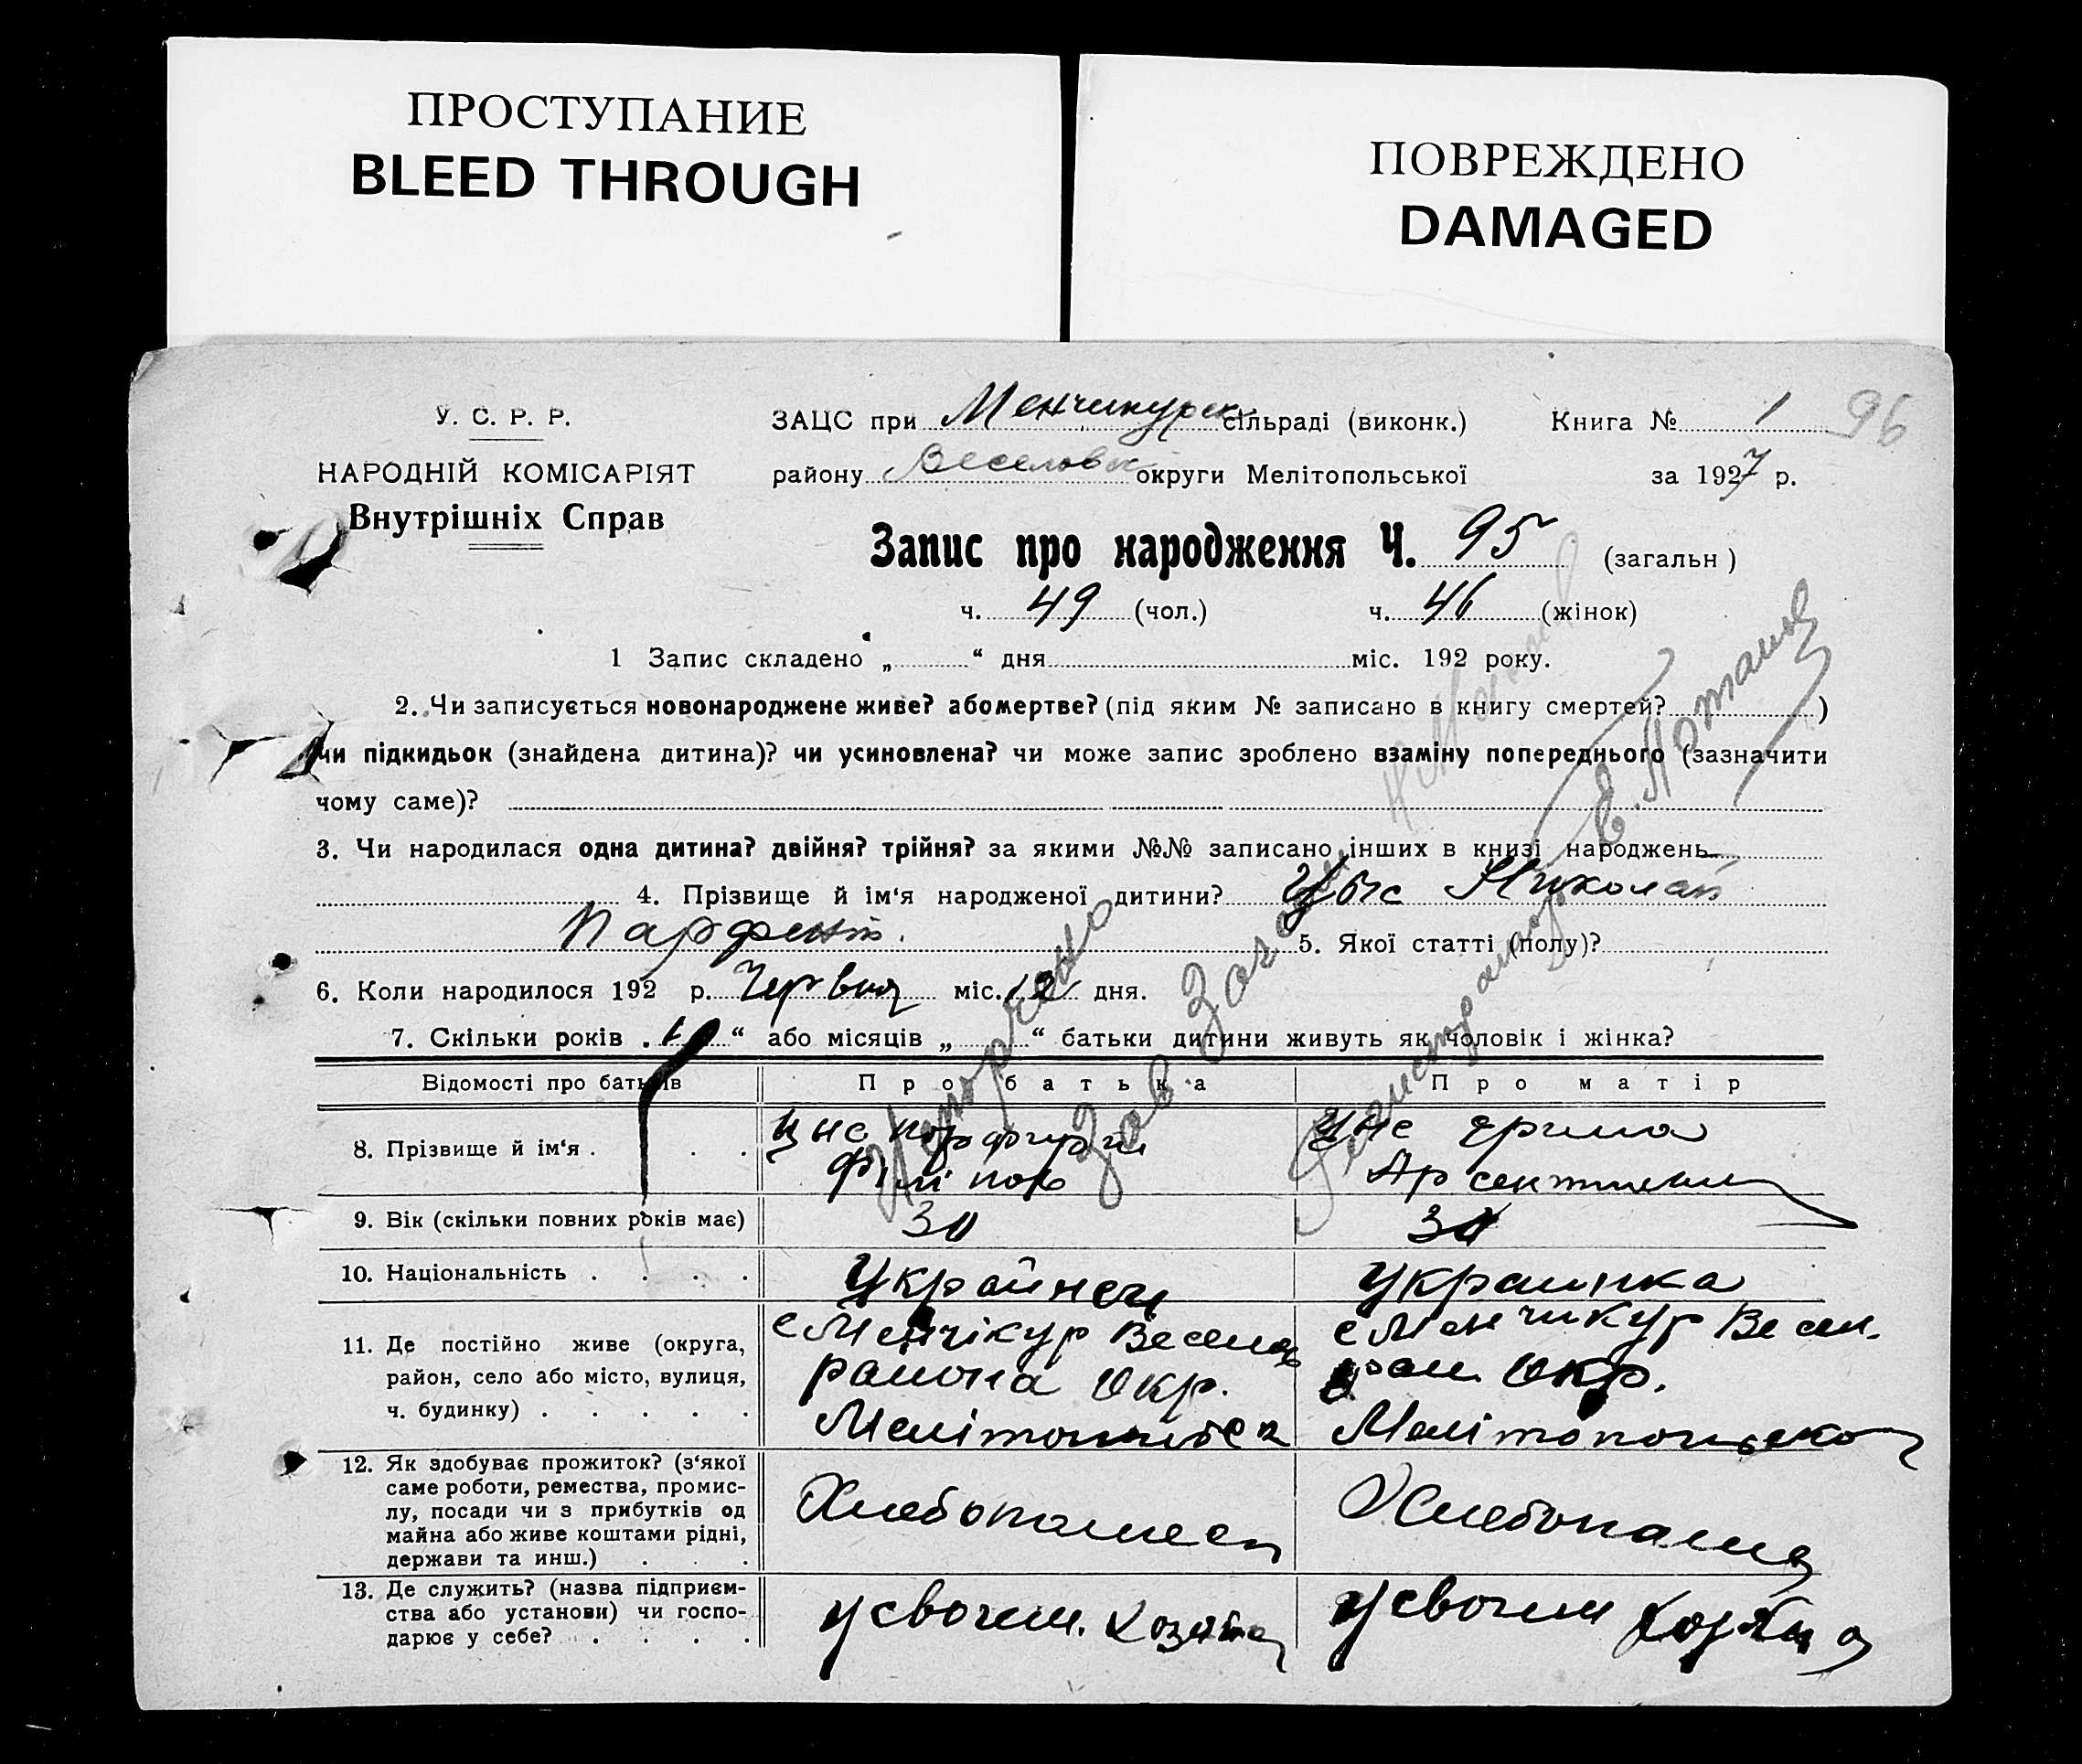 ПРОСТУПАНИЕ
BLEED THROUGH
ПОВРЕЖДЕНО
DAMAGED
У. С. Р. Р.
НАРОДНІЙ КОМІСАРІЯТ
Внутрішніх Справ
ЗАЦС при Менчикурск сільраді (виконк.) Книга № 1 96
району Веселовск округи Мелітопольської за 1927 р.
Запис про народження Ч. 95 (загальн )
ч. 49 (чол.) ч. 46 (жінок)
1 Запис складено „ “ дня міс. 192 року.
2. Чи записується новонароджене живе? або мертве? (під яким № записано в книгу смертей? )
чи підкидьок (знайдена дитина)? чи усиновлена? чи може запис зроблено взаміну попереднього (зазначити
чому саме)?
3. Чи народилася одна дитина? двійня? трійня? за якими №№ записано інших в книзі народжень
4. Прізвище й ім‘я народженої дитини? Николай
5. Якої статті (полу)?
6. Коли народилося 192 р. Червня міс. 12 дня.
7. Скільки років „ “ або місяців „ “ батьки дитини живуть як чоловік і жінка?
Відомості про батьків Про батька Про матір
8. Прізвище й ім‘я . . . Цис Цис
9. Вік (скільки повних років має) 30 30
10. Національність . . . . Українец украинка
11. Де постійно живе (округа, с Менчікур Весел с Менчикур Весел.
район, село або місто, вулиця, района Окр. Окр.
ч. будинку) . . . . . Мелітопольск Мелітопольско
12. Як здобуває прожиток? (з‘якої
саме роботи, ремества, промис-
лу, посади чи з прибутків од Хлебопашец Хлебопаш
майна або живе коштами рідні,
держави та инш.) . . .
13. Де служить? (назва підприєм-
ства або установи) чи госпо- у своем. у своем
дарює у себе? . . . .